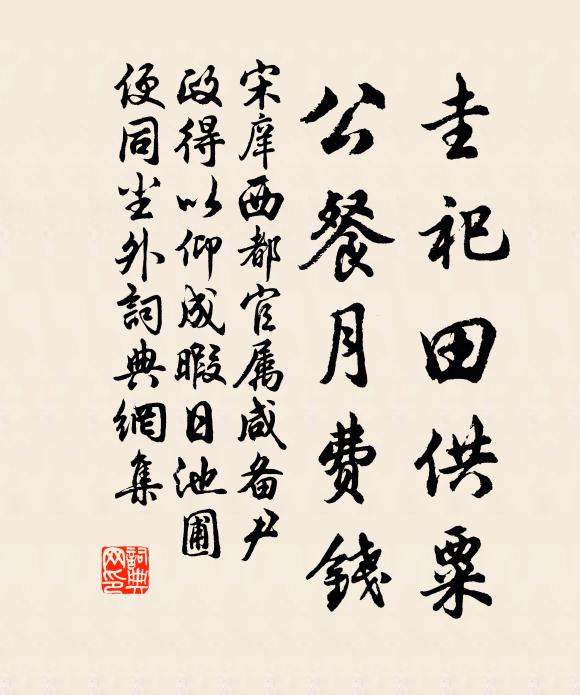 圭祀田供粟
公餐月费錢
宋庠西都官属咸备尹
政得以仰成暇日池圃
便同尘外詞典網集
詞典网印